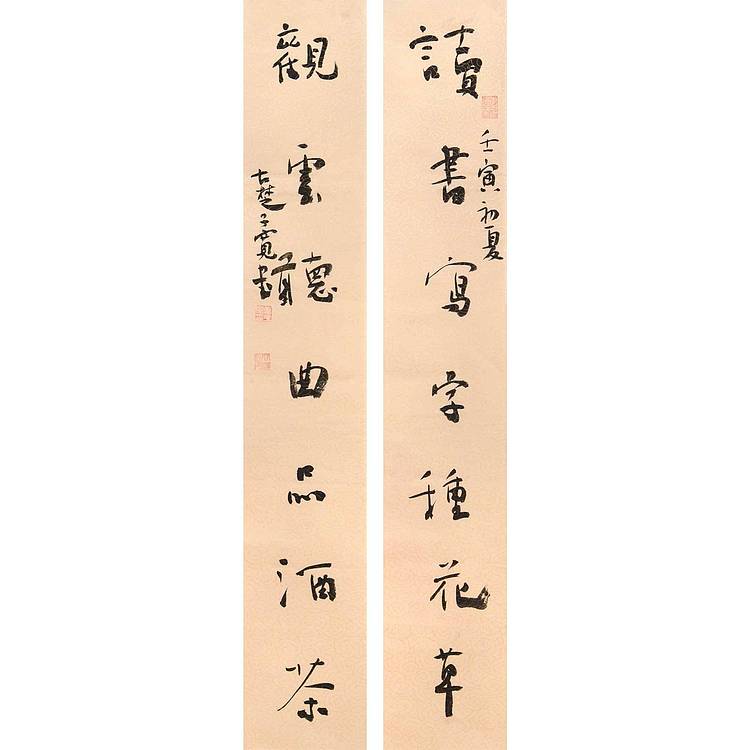 讀書寫字種花草
壬寅初夏
觀雲聽曲品酒茶
古楚子寬書